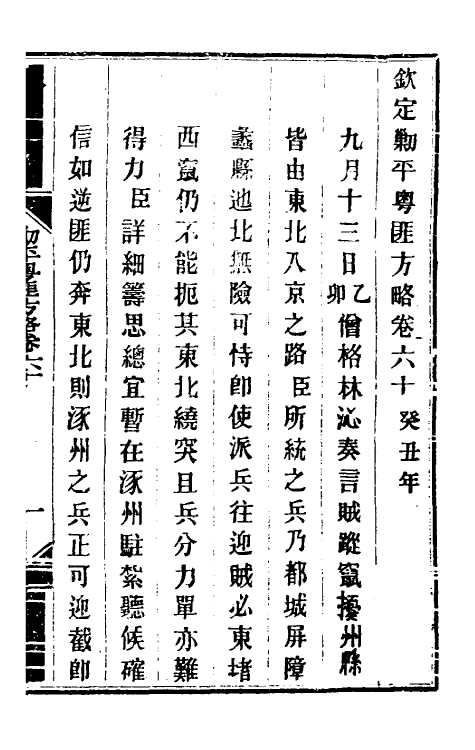 欽定勦平粵匪方略卷六十 癸丑年
九月十三日乙卯僧格林沁奏言賊蹤竄擾州縣
皆由東北入京之路臣所統之兵乃都城屏障
蠡縣迆北無險可恃卽使派兵往迎賊必東堵
西竄仍不能扼其東北繞突且兵分力單亦難
得力臣詳細籌思總宜暫在涿州駐紮聽候確
信如逆匪仍奔東北則涿州之兵正可迎截卽
勦平粵匪方略卷六十
一